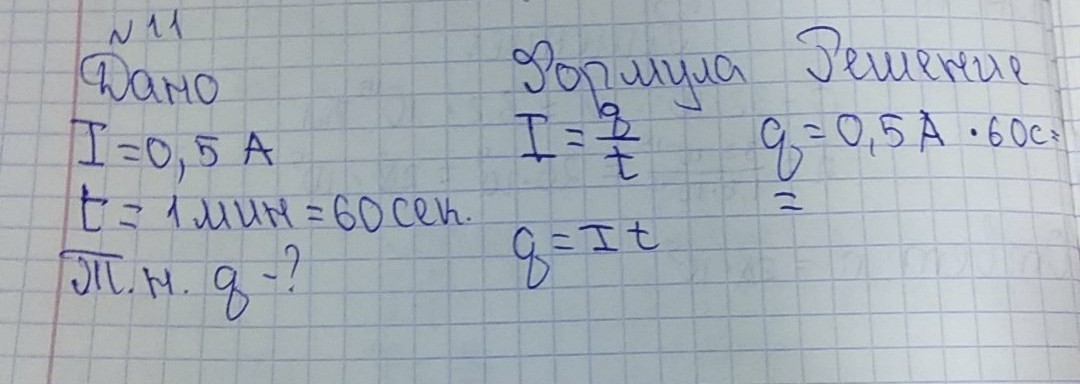 № 11
Дано
I = 0,5 А
t = 1 мин = 60 сек.
Т.н. q - ?
Формула
I = q/t
q = I t
Решение
q = 0,5 А · 60 с =
=